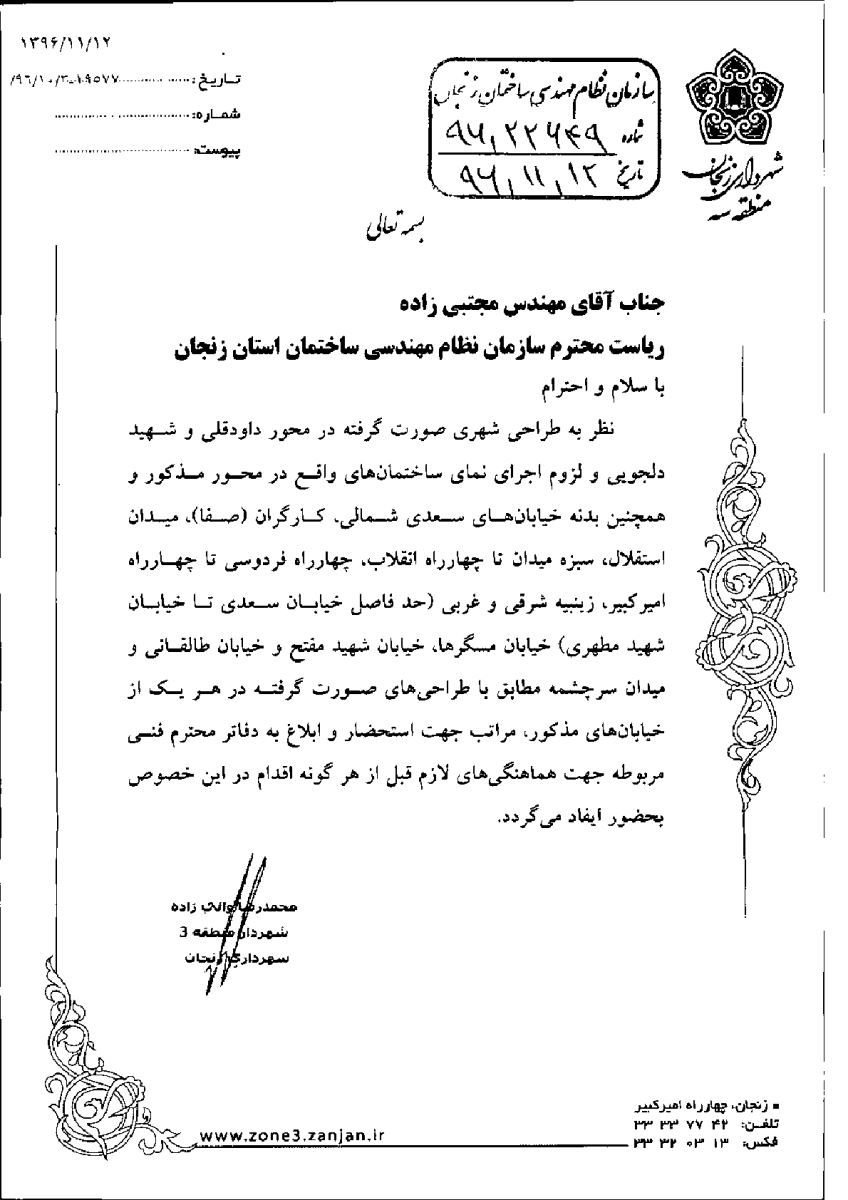 ۱۳۹۶/۱۱/۱۲
تاریخ:
شماره:
پیوست:
سازمان نظام مهندسی ساختمان زنجان
شماره ۹۶,۲۲۶۴۹
تاریخ ۹۶,۱۱,۱۲
شهرداری زنجان
منطقه سه
بسمه تعالی
جناب آقای مهندس مجتبی زاده
ریاست محترم سازمان نظام مهندسی ساختمان استان زنجان
با سلام و احترام
نظر به طراحی شهری صورت گرفته در محور داودقلی و شهید
دلجویی و لزوم اجرای نمای ساختمان‌های واقع در محور مذکور و
همچنین بدنه خیابان‌های سعدی شمالی، کارگران (صفا)، میدان
استقلال، سبزه میدان تا چهارراه انقلاب، چهارراه فردوسی تا چهارراه
امیرکبیر، زینبیه شرقی و غربی (حد فاصل خیابان سعدی تا خیابان
شهید مطهری) خیابان مسگرها، خیابان شهید مفتح و خیابان طالقانی و
میدان سرچشمه مطابق با طراحی‌های صورت گرفته در هر یک از
خیابان‌های مذکور، مراتب جهت استحضار و ابلاغ به دفاتر محترم فنی
مربوطه جهت هماهنگی‌های لازم قبل از هر گونه اقدام در این خصوص
بحضور ایفاد می‌گردد.
محمدرضا زاده
شهردار منطقه 3
شهرداری زنجان
▪ زنجان، چهارراه امیرکبیر
تلفن: ۴۲ ۷۷ ۳۳ ۳۳
فکس: ۱۳ ۰۳ ۳۲ ۳۳
www.zone3.zanjan.ir